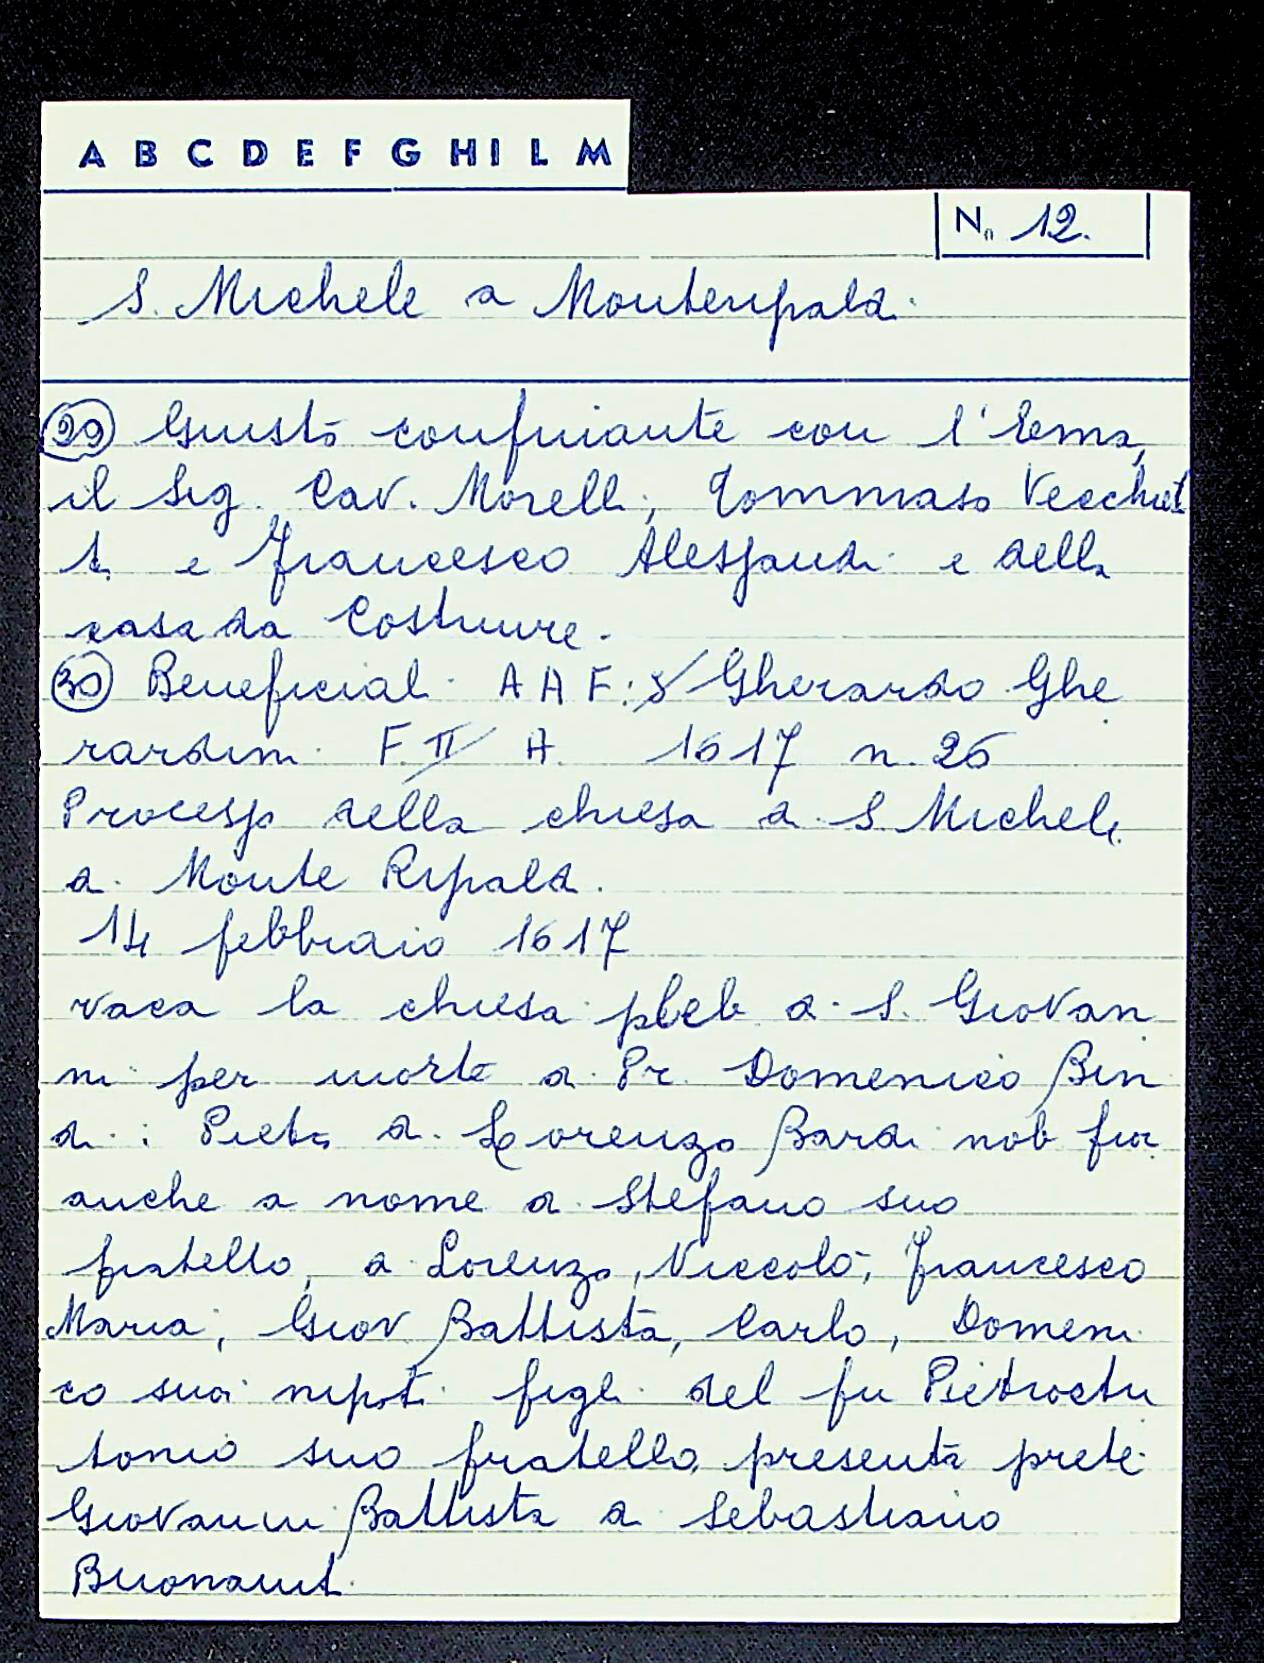 A B C D E F G H I L M
N. 12.
S. Michele a Monteripaldi
29 Giusto confinante con l'Ema,
il Sig. Cav. Morelli, Tommaso Vecchiet
ti e Francesco Alessandri e della
casa da Costruire.
30 Beneficiali AAF: Gherardo Ghe
rardini F. II A. 1617 n. 26
Processo della chiesa di S Michele
a Monte Ripaldi.
14 febbraio 1617
vaca la chiesa pleb di S. Giovan
ni per morte di Pr. Domenico Bin
di: Piero di Lorenzo Bardi nob fior
anche a nome di Stefano suo
fratello, di Lorenzo, Niccolò, Francesco
Maria, Giov Battista, Carlo, Domeni
co suoi nipoti figli del fu Pietroan
tonio suo fratello, presenta prete
Giovanni Battista di Sebastiano
Buonamit